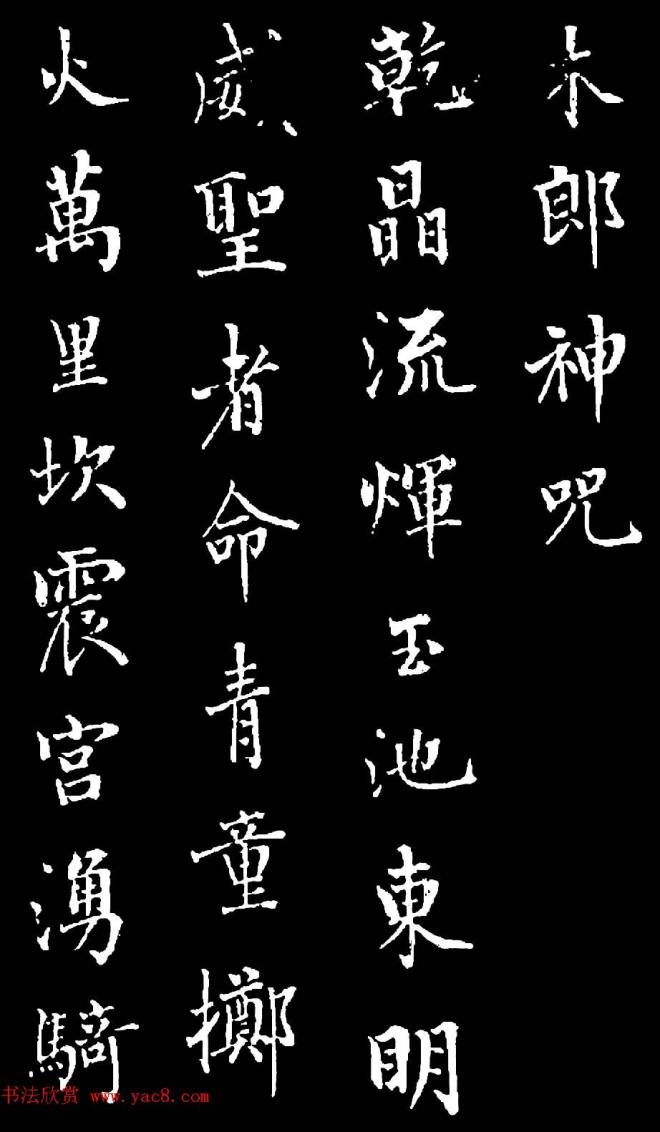 木郎神咒
乾晶流煇玉池東明
威聖者命青童擲
火萬里坎震宮湧騎
书法欣赏 www.yac8.com